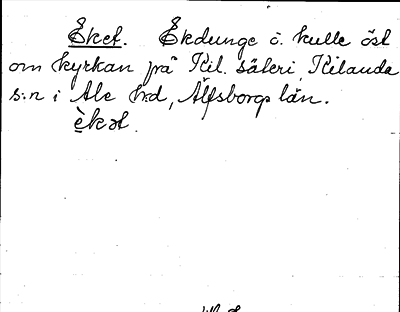 Eket. Ekdunge o. kulle öst
om kyrkan på Kil. säteri, Kilanda
s:n i Ale h:d, Älfsborgs län.
èkət